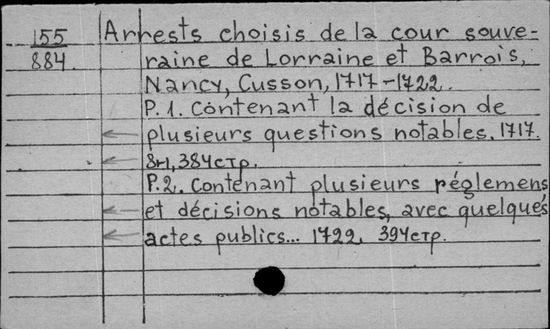 155
884
Arrests choisis de la cour souve-
raine de Lorraine et Barrois,
Nancy, Cusson, 1717-1722.
P. 1. Contenant la décision de
plusieurs questions notables. 1717.
8н, 384стр.
P. 2. Contenant plusieurs réglemens
et décisions notables, avec quelqués
actes publics... 1722. 394стр.